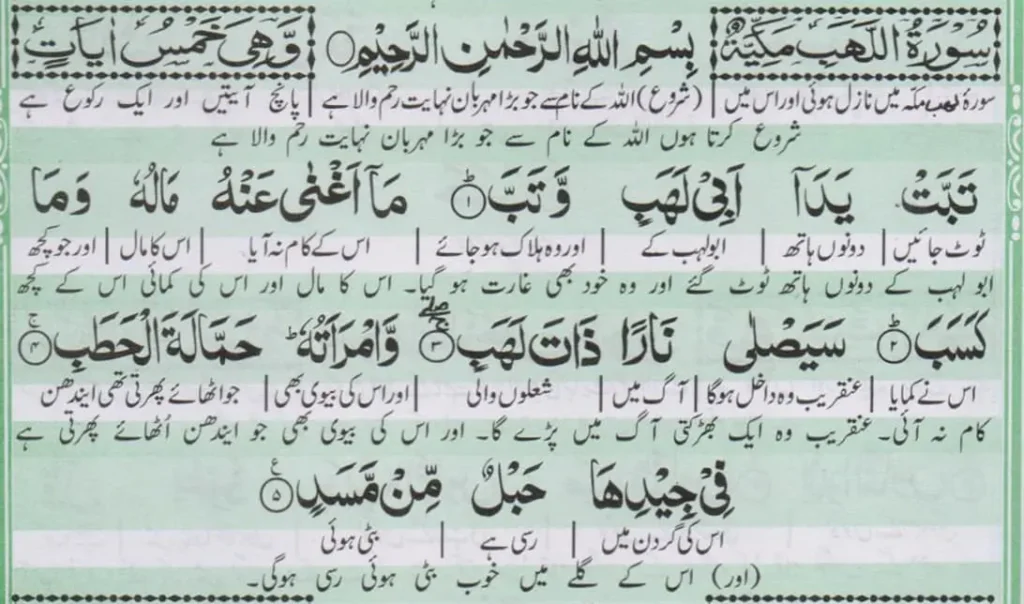 سُوْرَةُ اللَّهَبِ مَكِّيَّةٌ بِسْمِ اللهِ الرَّحْمٰنِ الرَّحِيْمِ وَّهِيَ خَمْسُ اٰيَاتٍ
سورۂ لہب مکہ میں نازل ہوئی اور اس میں | (شروع) اللہ کے نام سے جو بڑا مہربان نہایت رحم والا ہے | پانچ آیتیں اور ایک رکوع ہے
شروع کرتا ہوں اللہ کے نام سے جو بڑا مہربان نہایت رحم والا ہے
تَبَّتْ يَدَآ اَبِيْ لَهَبٍ وَّتَبَّ ؕ۝۱ مَآ اَغْنٰى عَنْهُ مَالُهٗ وَمَا
ٹوٹ جائیں | دونوں ہاتھ | ابولہب کے | اور وہ ہلاک ہو جائے | اس کے کام نہ آیا | اس کا مال | اور جو کچھ
ابو لہب کے دونوں ہاتھ ٹوٹ گئے اور وہ خود بھی غارت ہو گیا۔ اس کا مال اور اس کی کمائی اس کے کچھ
كَسَبَ ؕ۝۲ سَيَصْلٰى نَارًا ذَاتَ لَهَبٍ ۝۳ وَّامْرَاَتُهٗ ؕ حَمَّالَةَ الْحَطَبِ ۚ۝۴
اس نے کمایا | عنقریب وہ داخل ہوگا | آگ میں | شعلوں والی | اور اس کی بیوی بھی | جو اٹھائے پھرتی تھی ایندھن
کام نہ آئی۔ عنقریب وہ ایک بھڑکتی آگ میں پڑے گا۔ اور اس کی بیوی بھی جو ایندھن اُٹھائے پھرتی ہے
فِيْ جِيْدِهَا حَبْلٌ مِّنْ مَّسَدٍ ۝۵ ع
اس کی گردن میں | رسی ہے | بٹی ہوئی
(اور) اس کے گلے میں خوب بٹی ہوئی رسی ہوگی۔